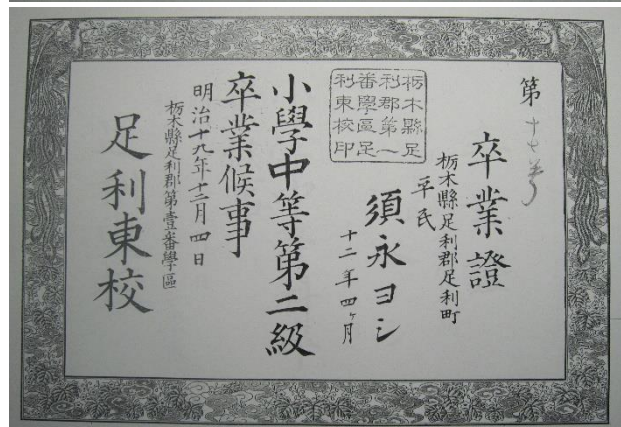 第十七号
卒業證
栃木縣足利郡足利町
平民
須永ヨシ
十二年四ヶ月
栃木縣足
利郡第一
番學區足
利東校印
小學中等第二級
卒業候事
明治十九年十二月四日
栃木縣足利郡第壹番學區
足利東校